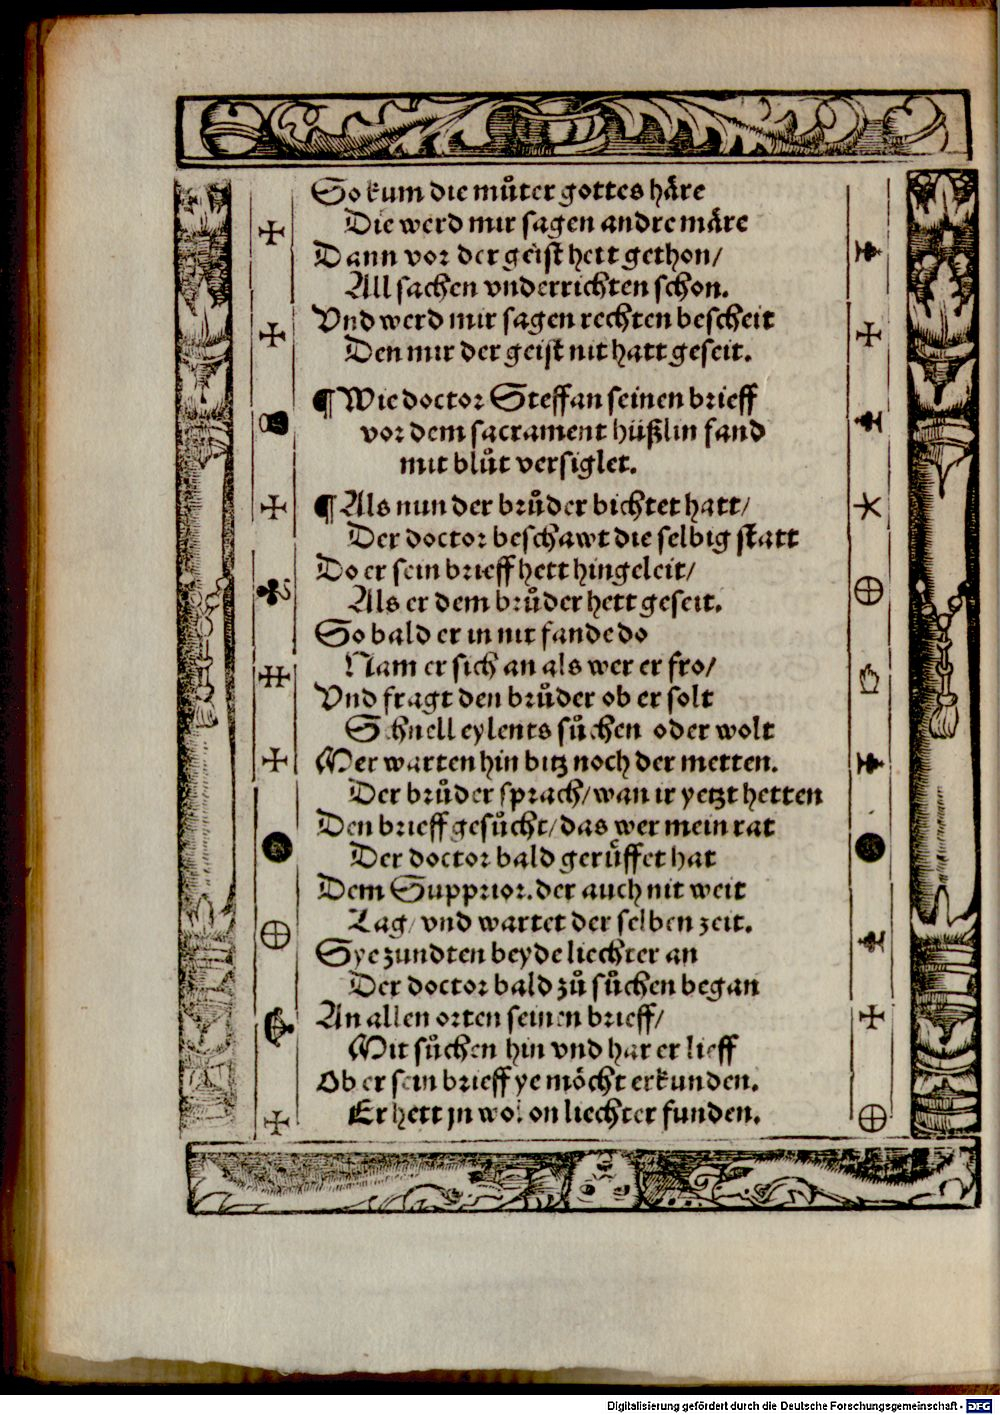 So kum die můter gottes häre
Die werd mir sagen andre märe
Dann vor der geist hett gethon/
All sachen vnderrichten schon.
Vnd werd mir sagen rechten bescheit
Den mir der geist nit hatt geseit.
¶ Wie doctor Steffan seinen brieff
vor dem sacrament hüßlin fand
mit blůt versiglet.
¶ Als nun der brůder bichtet hatt/
Der doctor beschawt die selbig statt
Do er sein brieff hett hingeleit/
Als er dem brůder hett geseit.
So bald er in nit fande do
Nam er sich an als wer er fro/
Vnd fragt den brůder ob er solt
Schnell eylents sůchen oder wolt
Mer warten hin bitz noch der metten.
Der brůder sprach/ wan ir yetzt hetten
Den brieff gesůcht/ das wer mein rat
Der doctor bald gerüffet hat
Dem Supprior. der auch nit weit
Lag/ vnd wartet der selben zeit.
Sye zundten beyde liechter an
Der doctor bald zů sůchen began
An allen orten seinen brieff/
Mit sůchen hin vnd har er lieff
Ob er sein brieff ye möcht erkunden.
Er hett jn wol on liechter funden.
Digitalisierung gefördert durch die Deutsche Forschungsgemeinschaft - DFG